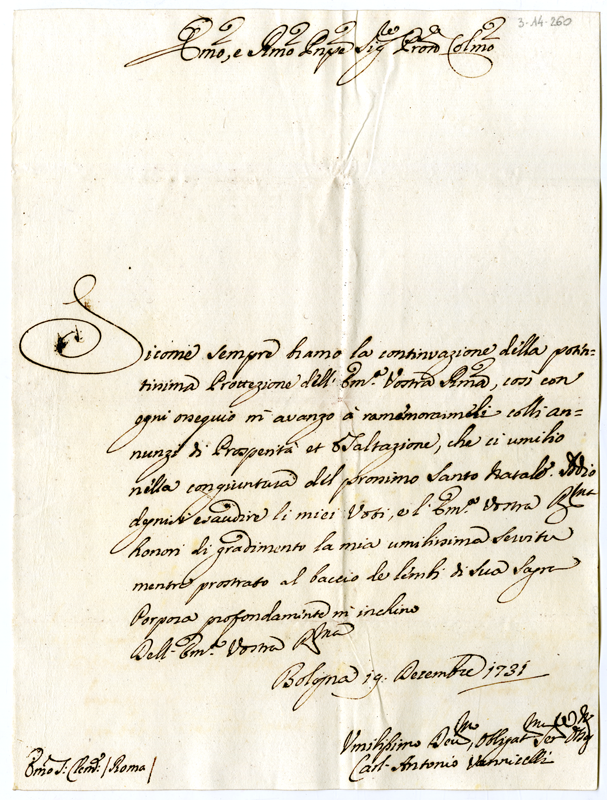 3-14-260
Emo, e Rmo Pnpe Sig.re Prone Colmo
Sicome sempre bramo la continuazione della poten=
tissima Protezione dell' Em.a Vostra Rma, così con
ogni ossequio m' avanzo à ramemorarmeli colli an=
nunzi di Prosperità et Esaltazione, che ci umilio
nella congiuntura del prossimo Santo Natale. Iddio
degnisi esaudire li miei Voti, e l' Em.a Vostra Rma
honori di gradimento la mia umilissima servitù
mentre prostrato al baccio de lembi di sua Sagra
Porpora profondamente m' inchino
Dell' Em.a Vostra Rma
Bologna 19. Decembre 1731
Umilissimo Deumo, Obligatmo Ser
Carl' Antonio Vannicelli
Emo S: Clem.te / Roma /